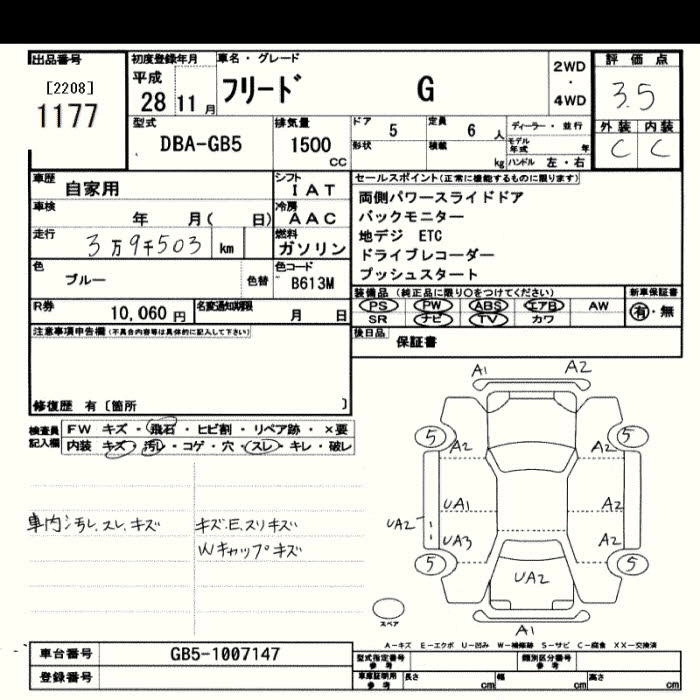 出品番号 初度登録年月 車名・グレード 2WD ・ 4WD 評価点
[2208] 1177
平成 28 11 月
フリード G
3.5
外装 内装
C C
型式 DBA-GB5
排気量 1500 CC
ドア 5 定員 6 人
ディーラー・並行
形状 積載 kg
モデル年式 年
ハンドル 左・右
車歴 自家用
シフト IAT
車検 年 月( 日)
冷房 AAC
走行 3万9千503 km
燃料 ガソリン
色 ブルー 色替
色コード B613M
R券 10,060 円
名変通知期限 月 日
セールスポイント(正常に機能するものに限ります)
両側パワースライドドア
バックモニター
地デジ ETC
ドライブレコーダー
プッシュスタート
装備品 (純正品に限り○をつけてください) 新車保証書
PS PW ABS エアB AW
SR ナビ TV カワ
有・無
後日品 保証書
注意事項申告欄(不具合内容等は具体的に記入して下さい)
修復歴 有〔箇所 〕
検査員記入欄
FW キズ・飛石・ヒビ割・リペア跡・×要
内装 キズ・汚レ・コゲ・穴・スレ・キレ・破レ
車内汚レ、スレ、キズ
キズ.E.スリキズ
Wキャップキズ
A1 A2
5 5
A2 A2
UA1 A2
UA2
UA3 A2
5 5
UA2
スペア
A1
A-キズ E-エクボ U-凹み W-補修跡 S-サビ C-腐食 XX-交換済
車台番号 GB5-1007147
登録番号
型式指定番号 参考 類別区分番号 参考
車庫証明用 参考 長さ cm 幅 cm 高さ cm